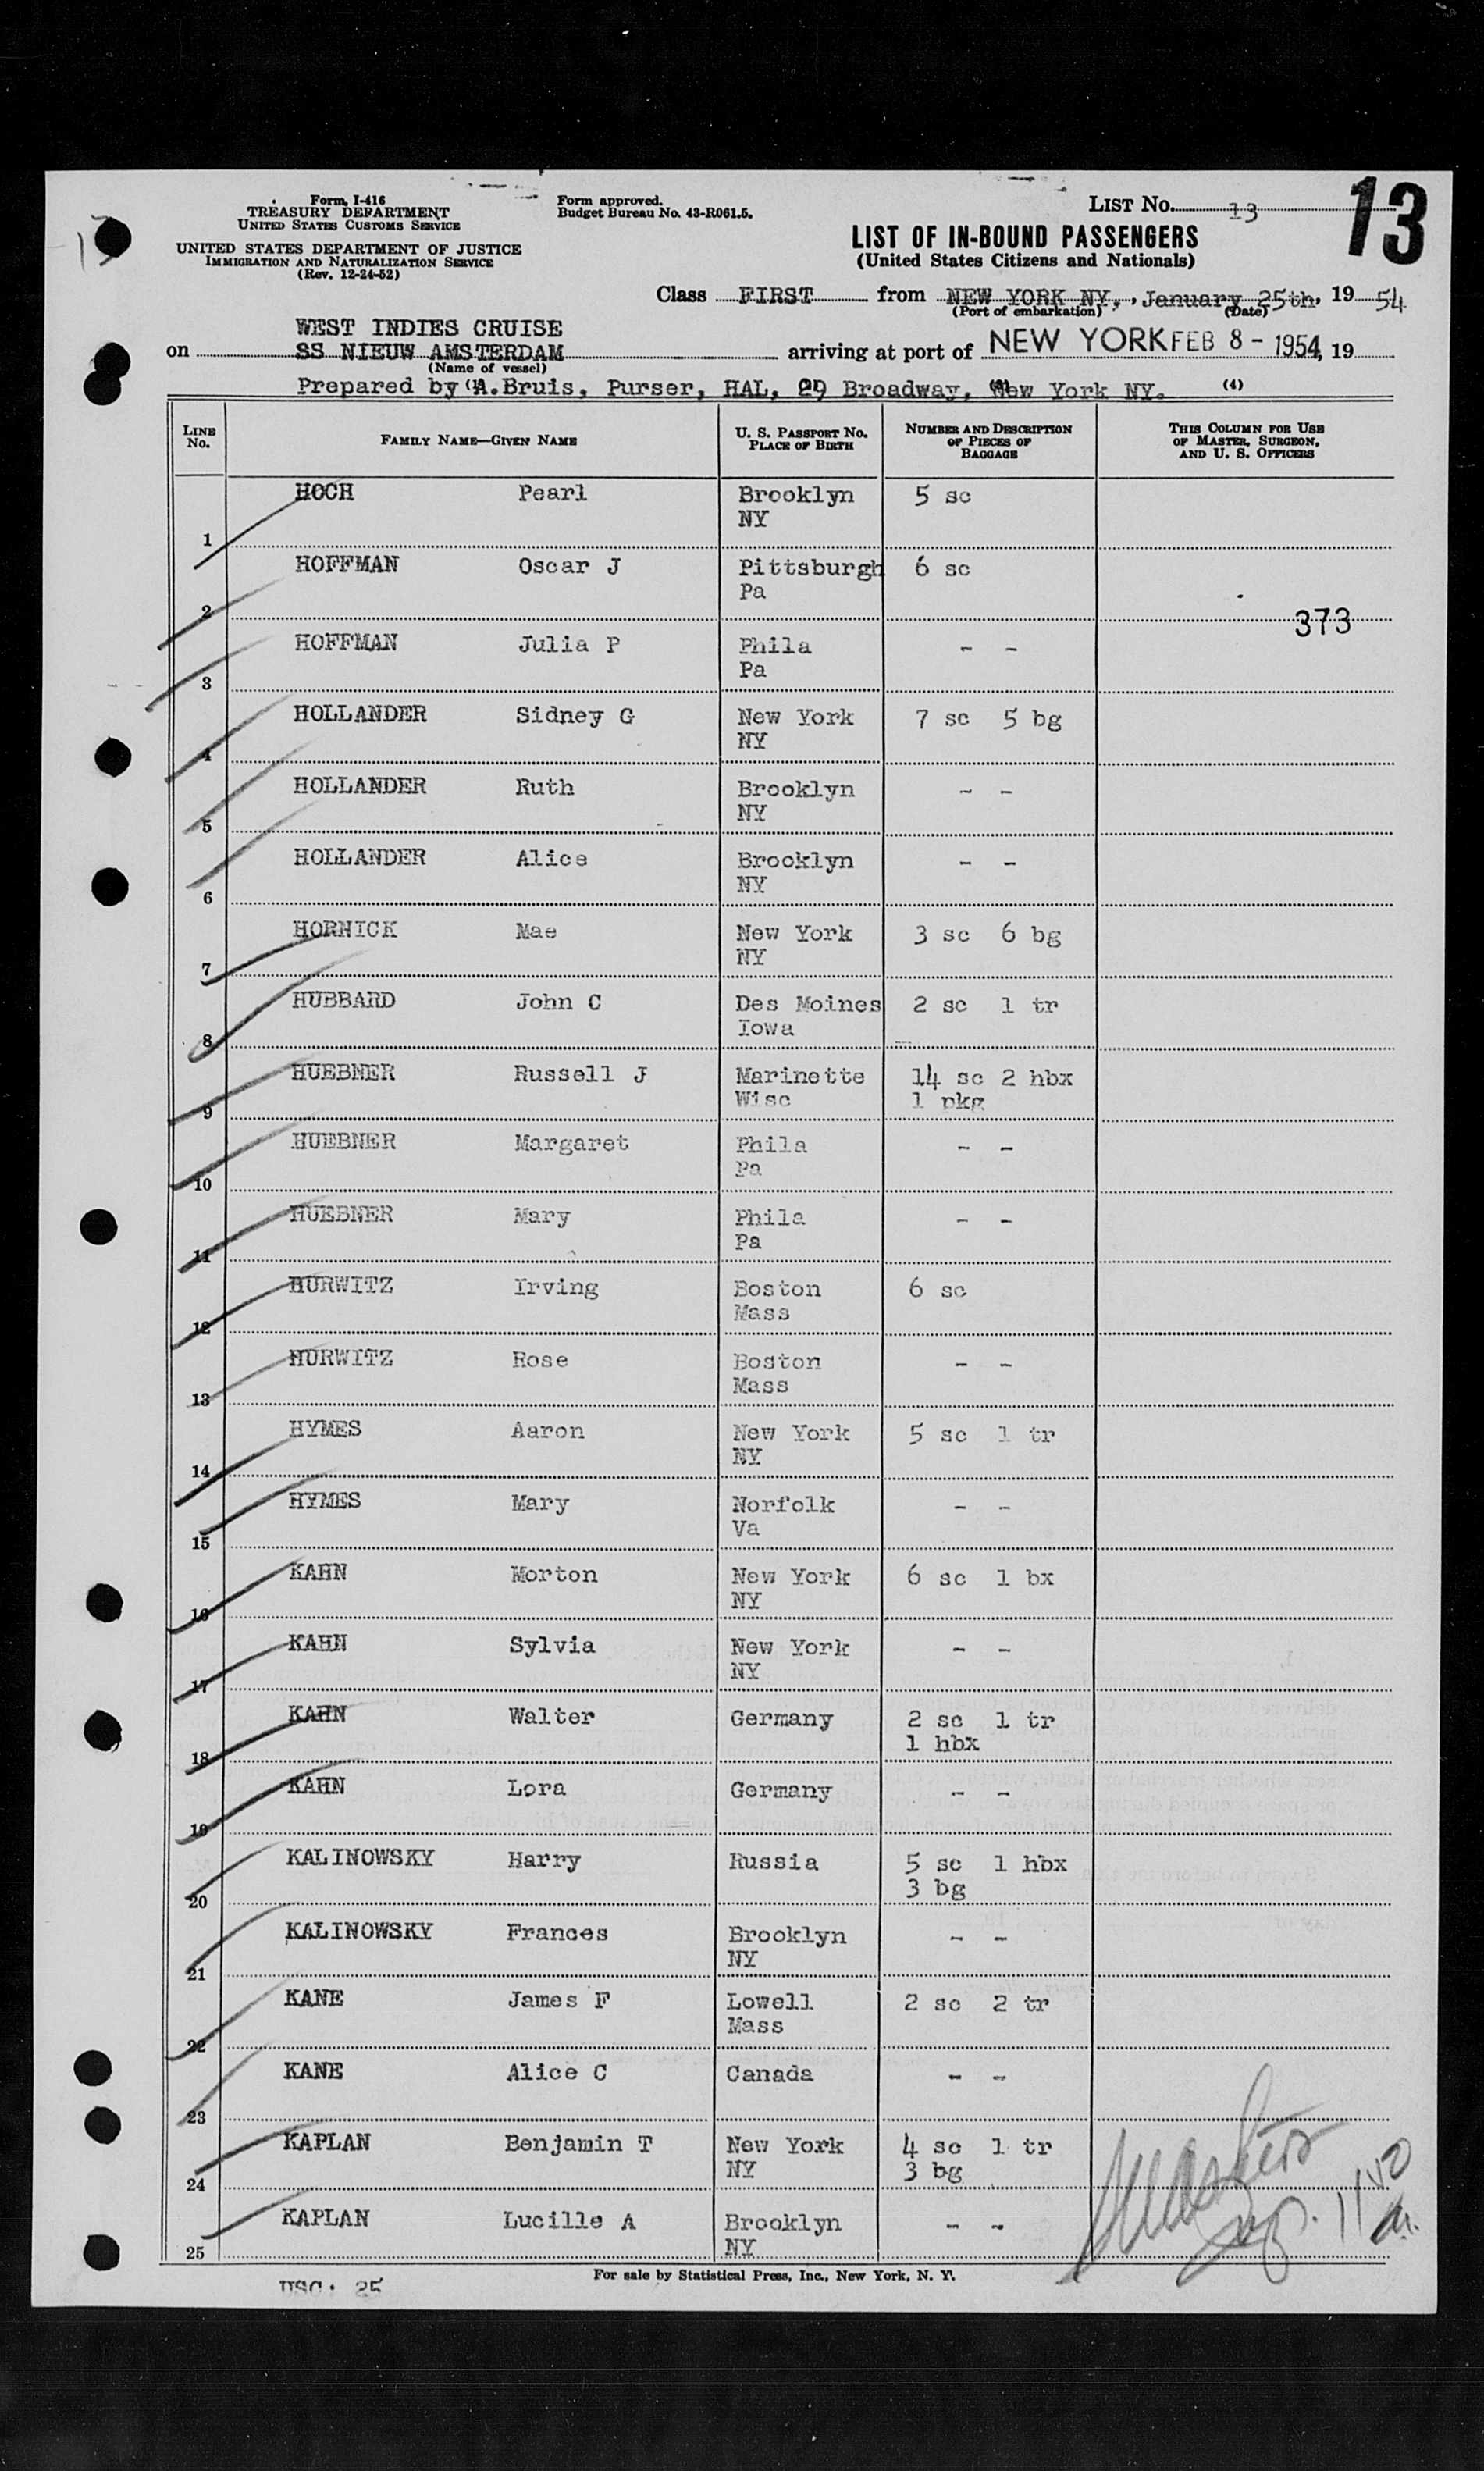 Form I-416
TREASURY DEPARTMENT
UNITED STATES CUSTOMS SERVICE
UNITED STATES DEPARTMENT OF JUSTICE
IMMIGRATION AND NATURALIZATION SERVICE
(Rev. 12-24-52)
Form approved.
Budget Bureau No. 43-R061.5.
LIST No. 13
13
LIST OF IN-BOUND PASSENGERS
(United States Citizens and Nationals)
Class FIRST from NEW YORK NY., January 25th, 19 54
(Port of embarkation) (Date)
WEST INDIES CRUISE
on SS NIEUW AMSTERDAM arriving at port of NEW YORK FEB 8 - 1954, 19
(Name of vessel)
Prepared by A.Bruis, Purser, HAL, 29 Broadway, New York NY. (4)
LINE No. FAMILY NAME—GIVEN NAME U. S. PASSPORT No. PLACE OF BIRTH NUMBER AND DESCRIPTION OF PIECES OF BAGGAGE THIS COLUMN FOR USE OF MASTER, SURGEON, AND U. S. OFFICERS
1 HOCH Pearl Brooklyn NY 5 sc
2 HOFFMAN Oscar J Pittsburgh Pa 6 sc
373
3 HOFFMAN Julia P Phila Pa - -
4 HOLLANDER Sidney G New York NY 7 sc 5 bg
5 HOLLANDER Ruth Brooklyn NY - -
6 HOLLANDER Alice Brooklyn NY - -
7 HORNICK Mae New York NY 3 sc 6 bg
8 HUBBARD John C Des Moines Iowa 2 sc 1 tr
9 HUEBNER Russell J Marinette Wisc 14 sc 2 hbx 1 pkg
10 HUEBNER Margaret Phila Pa - -
11 HUEBNER Mary Phila Pa - -
12 HURWITZ Irving Boston Mass 6 sc
13 HURWITZ Rose Boston Mass - -
14 HYMES Aaron New York NY 5 sc 1 tr
15 HYMES Mary Norfolk Va - -
16 KAHN Morton New York NY 6 sc 1 bx
17 KAHN Sylvia New York NY - -
18 KAHN Walter Germany 2 sc 1 tr 1 hbx
19 KAHN Lora Germany - -
20 KALINOWSKY Harry Russia 5 sc 1 hbx 3 bg
21 KALINOWSKY Frances Brooklyn NY - -
22 KANE James F Lowell Mass 2 sc 2 tr
23 KANE Alice C Canada - -
24 KAPLAN Benjamin T New York NY 4 sc 1 tr 3 bg
25 KAPLAN Lucille A Brooklyn NY - -
For sale by Statistical Press, Inc., New York, N. Y.
USC: 25